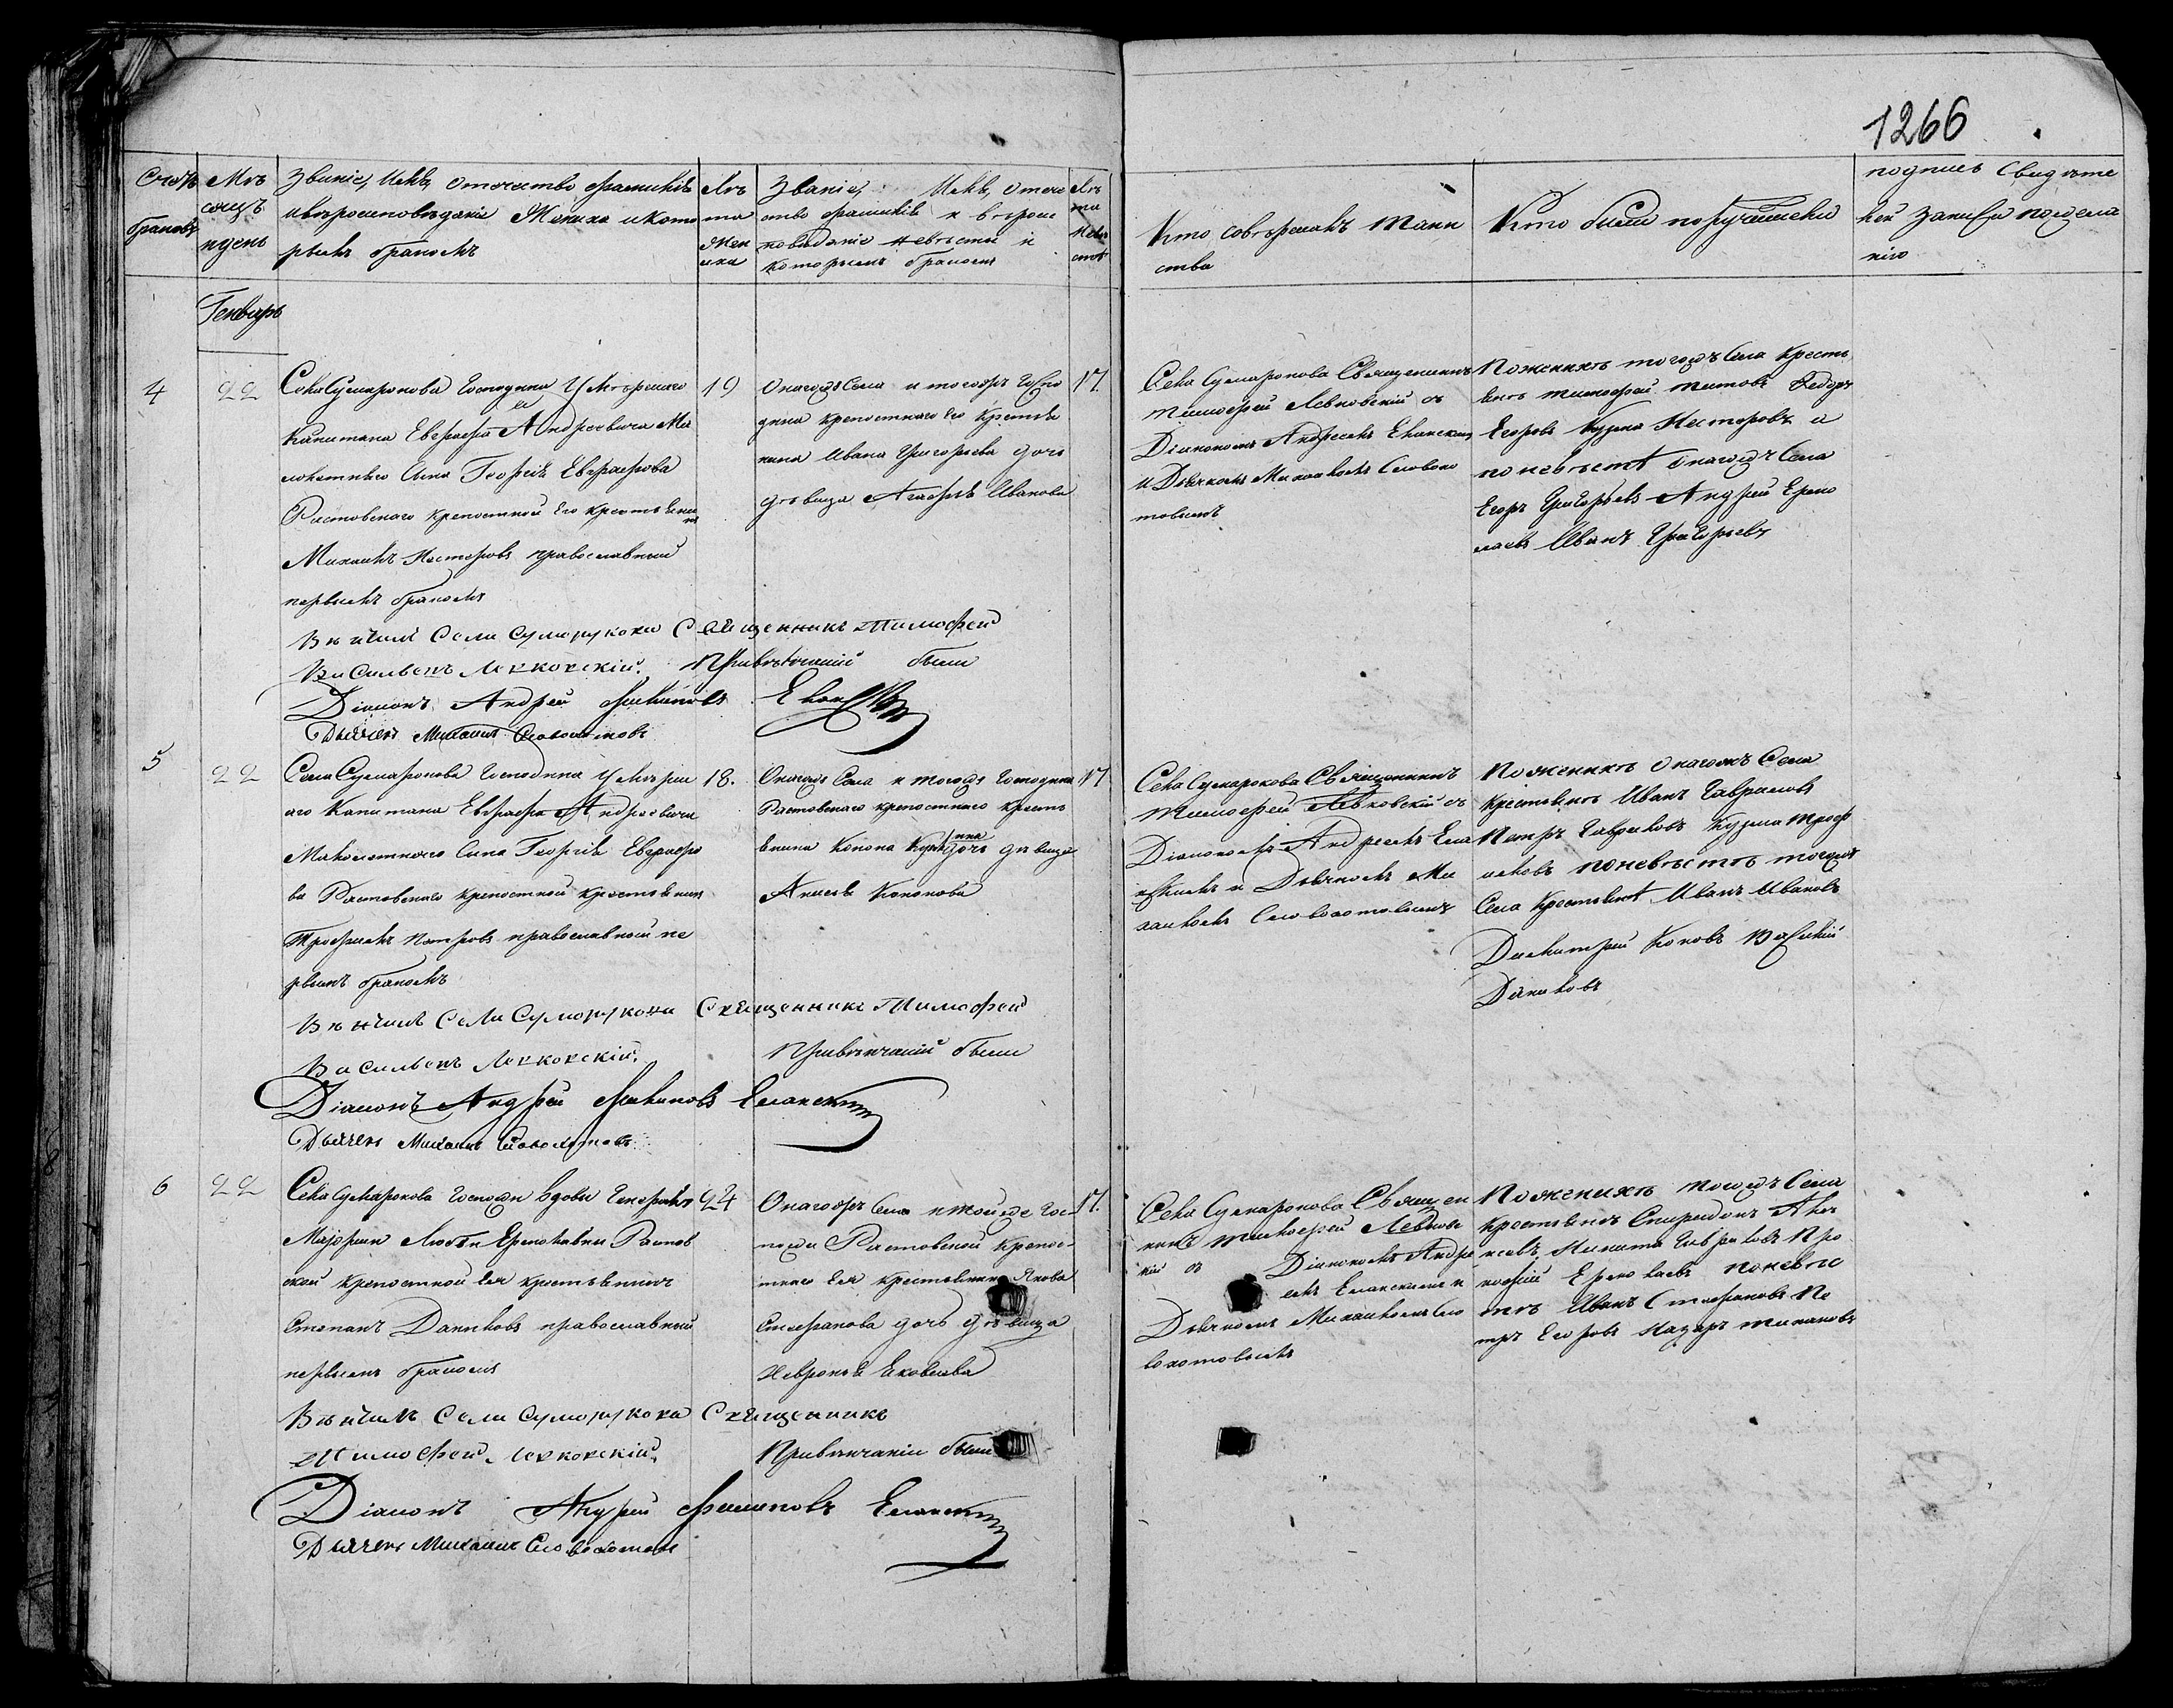 1266
Счетъ браковъ
Мѣсяцъ и день
Званіе, Имя, Отечество фамилія
и вѣроисповѣданіе Жениха и кото
рымъ бракомъ
Лѣта Жениха
Званіе, Имя, отече
ство фамилія и вѣроис
повѣданіе невѣсты и
которымъ бракомъ
Лѣта невѣсты
Кто совершалъ Таин
ства
Кто были поручители
подпись Свидѣте
лей записи по жела
нію
Генварь
4
22
Села Сумарокова Господина Умершаго
Капитана Евграфа Андреевича Ма
лолетнаго Сына Георгія Евграфова
Растовскаго крепостной Его крестьянинъ
Михаилъ Нестеровъ православный
первымъ бракомъ
19
Онагожъ Села и тогожъ Госпо
дина крепостнаго Его Крестья
нина Ивана Григорьева дочь
дѣвица Агафья Иванова
17.
Села Сумарокова Священникъ
Тимофей Левковскій съ
Діакономъ Андреемъ Еланскимъ
и Дьячкомъ Михаиломъ Словохо
товымъ
По женихѣ тогожъ Села Кресть
янѣ Тимофей Титовъ Федоръ
Егоровъ Кузма Несторовъ а
по невѣстѣ Онагожъ Села
Егоръ Григорьевъ Андрей Ермо
лаевъ Иванъ Григорьевъ
Вѣнчалъ Села Сумарокова Священникъ Тимофей
Васильевъ Левковскій. При вѣнчаніи были
Діаконъ Андрей Филиповъ Еланскій
Дьячекъ Михаилъ Словохотовъ
5
22
Села Сумарокова Господина Умерш
аго Капитана Евграфа Андреевича
Малолетнаго Сына Георгія Евграфо
ва Растовскаго крепостной крестьянинъ
Трофимъ Петровъ православный пе
рвымъ бракомъ
18.
Онагожъ Села и тогожъ Господина
Растовскаго крепостнаго кресть
янина Конона дочь дѣвица
Анисья Кононова
17
Села Сумарокова Священникъ
Тимофей Левковскій съ
Діакономъ Андреемъ Ела
нскимъ и Дьячкомъ Ми
хаиломъ Словохотовымъ
По женихѣ Онагожъ Села
Крестьянѣ Иванъ Гавриловъ
Петръ Гавриловъ Кузма Троф
имовъ по невѣстѣ тогожъ
Села Крестьянѣ Иванъ Ивановъ
Дмитрій Коновъ Василій
Даниловъ
Вѣнчалъ Села Сумарокова Священникъ Тимофей
Васильевъ Левковскій. При вѣнчаніи были
Діаконъ Андрей Филиповъ Еланскій
Дьячекъ Михаилъ Словохотовъ
6
22
Села Сумарокова Госпожи вдовы Генералъ
Маіорши Любви Ермолаевны Растов
ской крепостной Ея крестьянинъ
Степанъ Даниловъ православный
первымъ бракомъ
24
Онагожъ Села и тойжде Гос
пожи Растовской крепос-
тнаго Ея крестьянина Якова
Стефанова дочь дѣвица
Февронья Яковлева
17.
Села Сумарокова Священ
никъ Тимофей Левковс
кій съ Діакономъ Андре
емъ Еланскимъ и
Дьячкомъ Михаиломъ Сло
вохотовымъ
По женихѣ тогожъ Села
Крестьянѣ Спиридонъ
Никита Гавриловъ Про
кофій Ермолаевъ по невѣс
тѣ Иванъ Стефановъ Пе
тръ Егоровъ Назаръ
Вѣнчалъ Села Сумарокова Священникъ
Тимофей Левковскій. При вѣнчаніи были
Діаконъ Андрей Филиповъ Еланскій
Дьячекъ Михаилъ Словохотовъ